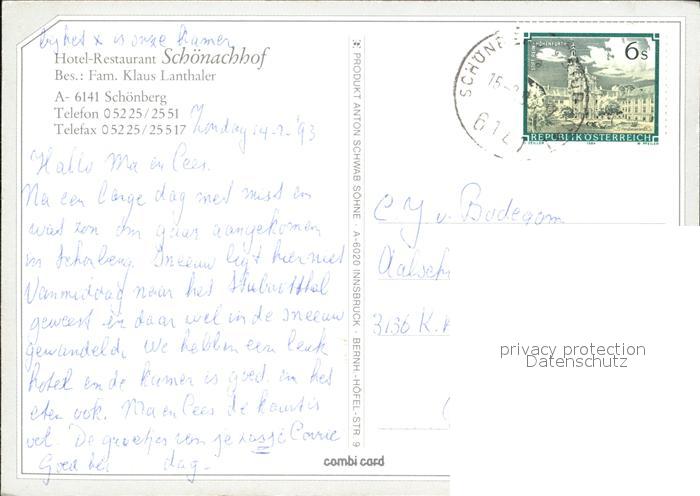 by het x is onze kamer
Hotel-Restaurant Schönachhof
Bes.: Fam. Klaus Lanthaler
A- 6141 Schönberg
Telefon 05225/2551
Telefax 05225/25517
Zondag 14-2-'93
Hallo Ma en Cees.
Na een lange dag met mist en
wat zon om aangekomen
in Schonberg. Sneeuw ligt hier niet
Vanmiddag naar het Stubaithal
geweest en daar wel in de sneeuw
gewandeld. We hebben een leuk
hotel en de kamer is goed en het
eten ook. Ma en Cees de kaart is
vol. De groetjes van je Corrie
Goed dag-
PRODUKT ANTON SCHWAB SÖHNE · A-6020 INNSBRUCK · BERNH.-HÖFEL-STR 9
combi card
SCHÖNB
6141
6 S
REPUBLIK ÖSTERREICH
C. J. v. Bodegom
Aalsch
3136 K.
privacy protection
Datenschutz